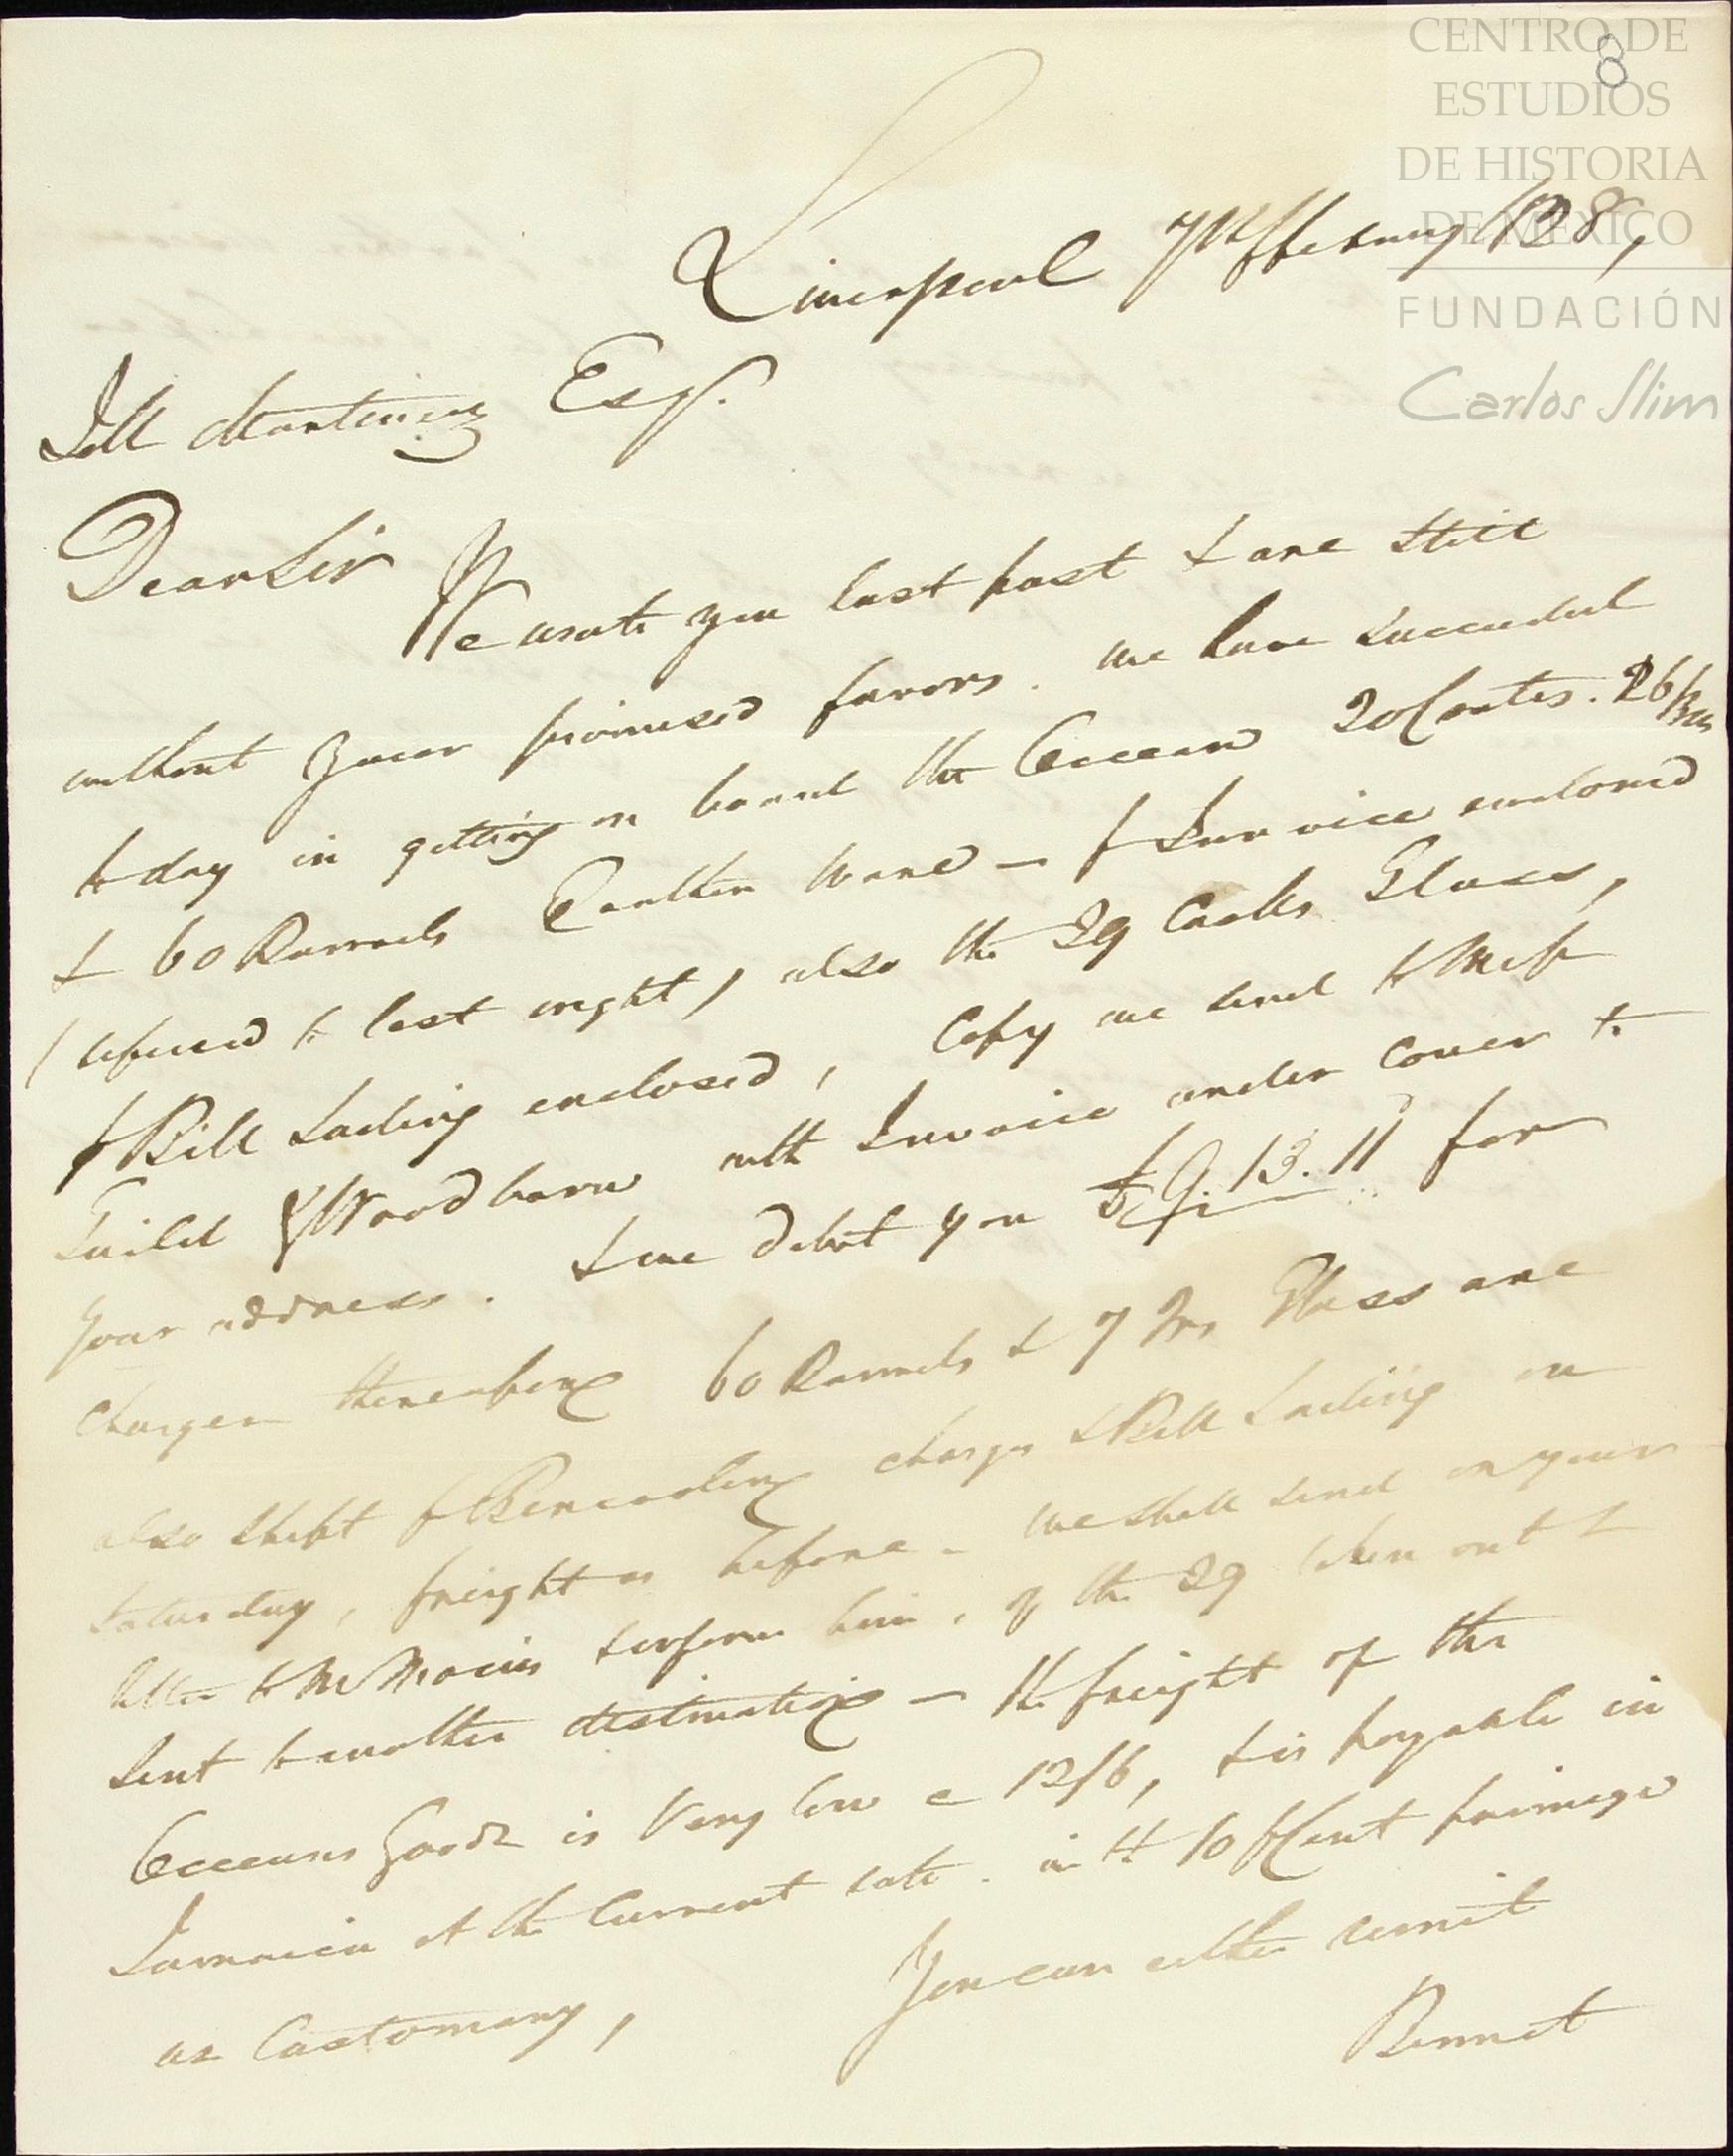 CENTRO DE
ESTUDIOS
DE HISTORIA
DE MÉXICO
FUNDACIÓN
Carlos Slim
8
Liverpool 7th ffebruary 1828,
Martinez Esqr.
Dear Sir
We wrote you last post & are still
without your promised favors. we have succeeded
to day in getting on board the Occean 20 Crates. 26
& 60 Barrels Earthen Ware — Invoice enclosed
(refused to last night) also the 29 Casks Glass,
Bill Lading enclosed, Copy we send to Mess
Guild & Woodburn with Invoice under cover to
your address. & we debit you £9.13.11 for
Charges thereupon 60 Barrels & 7 Glass are
also shipt charges & Bill Lading on
Saturday, freight as before - we shall send on your
letter to Mr inform him, of the 29 taken out &
sent to another destination — the freight of the
Occeans Goods is Very low a 12/6, & is payable in
Jamaica at the Current rate. with 10 Cent primage
as Customary, You can either remit
Bennet